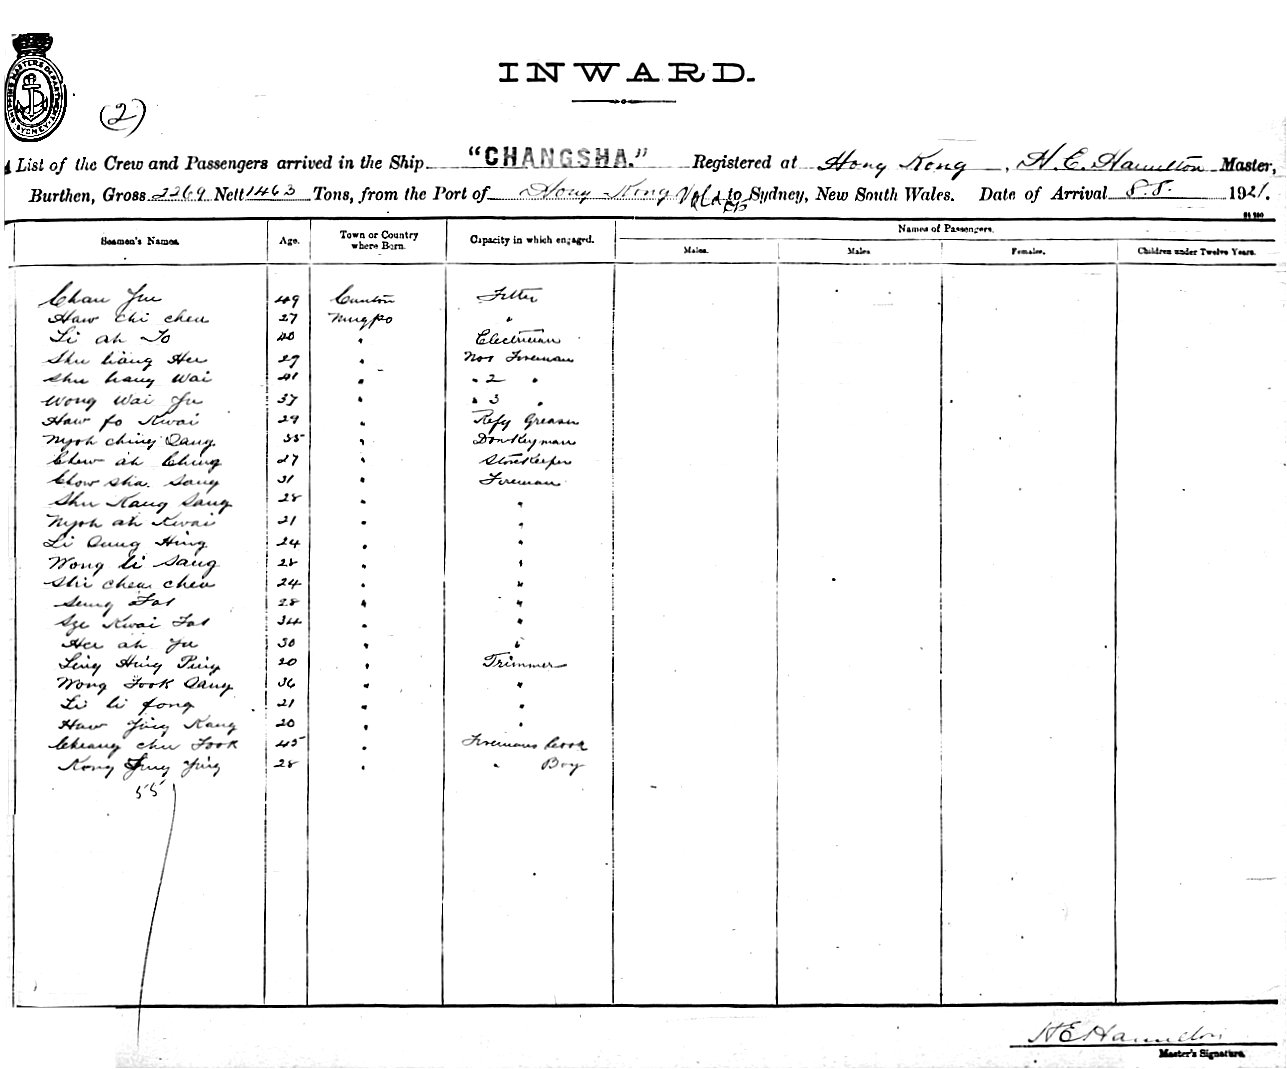 INWARD.
SHIPPING MASTERS DEPARTMENT SYDNEY
(2)
A List of the Crew and Passengers arrived in the Ship "CHANGSHA." Registered at Hong Kong, H. E. Hamilton Master,
Burthen, Gross 2269 Nett 1463 Tons, from the Port of Hong Kong to Sydney, New South Wales. Date of Arrival 1921.
Seamen's Names. Age. Town or Country where Born. Capacity in which engaged. Names of Passengers.
Males. Males Females. Children under Twelve Years.
Chan Yu 49 Canton Fitter
Haw Chi Cheu 27 Ningpo "
Li ah To 40 " Electrician
Shu Liang Her 29 " No1 Fireman
Shu hang Wai 41 " " 2 "
Wong Wai Yu 37 " " 3 "
Haw fo Kwai 29 " Refg Greaser
Nyoh Ching Sang 35 " Donkeyman
Chew ah Ching 27 " Storekeeper
Chow Sha Sang 31 " Fireman
Shu Kang Sang 28 " "
Nyoh ah Kwai 21 " "
Li Sung Hing 24 " "
Wong li Sang 28 " "
Shi Cheu Cheu 24 " "
Seung Fat 28 " "
Sze Kwai Fat 34 " "
Her ah Yu 30 " "
Ling Hing Ping 20 " Trimmer
Wong Fook Sang 36 " "
Li li fong 21 " "
Haw Ying Kang 20 " "
Cheang chu Fook 45 " Firemans Cook
Kong Ying 28 " " Boy
55
H E Hamilton
Master's Signature.